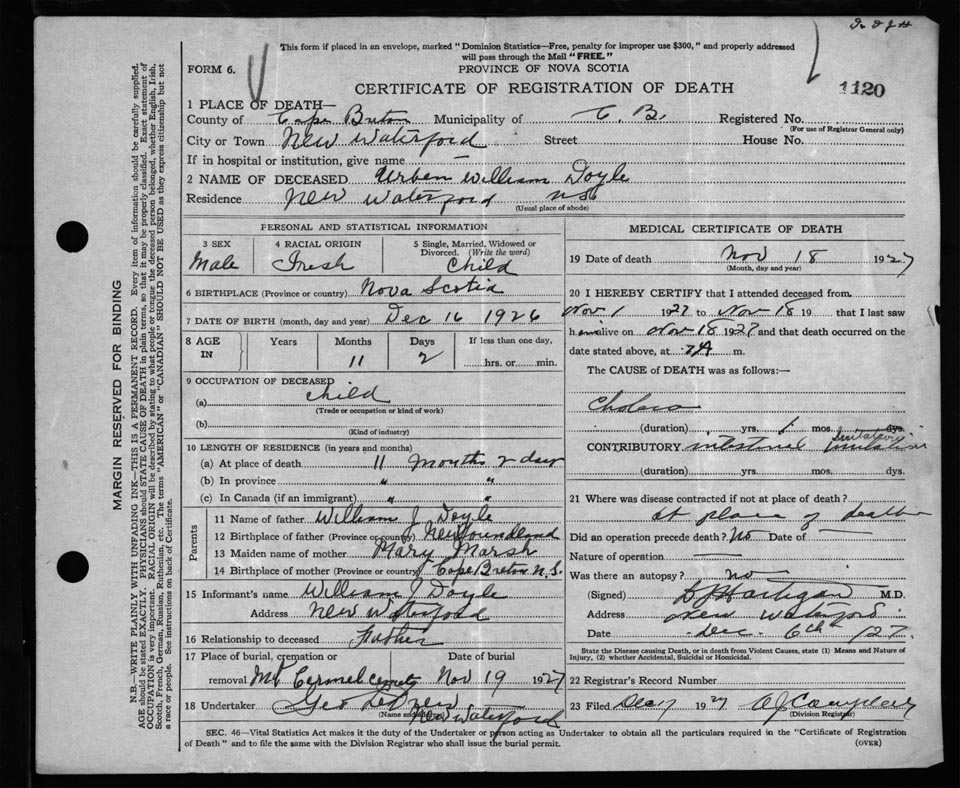 This form if placed in an envelope, marked "Dominion Statistics—Free, penalty for improper use $300," and properly addressed
will pass through the Mail "FREE."
FORM 6.
PROVINCE OF NOVA SCOTIA
CERTIFICATE OF REGISTRATION OF DEATH
1120
1 PLACE OF DEATH—
County of Cape Breton Municipality of C. B. Registered No.
(For use of Registrar General only)
City or Town New Waterford Street House No.
If in hospital or institution, give name —
2 NAME OF DECEASED Urben William Doyle
Residence New Waterford
(Usual place of abode)
PERSONAL AND STATISTICAL INFORMATION
3 SEX
Male
4 RACIAL ORIGIN
Iresh
5 Single, Married, Widowed or
Divorced. (Write the word)
Child
6 BIRTHPLACE (Province or country) Nova Scotia
7 DATE OF BIRTH (month, day and year) Dec 16 1926
8 AGE IN Years Months 11 Days 2 If less than one day, hrs. or min.
9 OCCUPATION OF DECEASED
(a) Child
(Trade or occupation or kind of work)
(b)
(Kind of industry)
10 LENGTH OF RESIDENCE (in years and months)
(a) At place of death 11 months 2 day
(b) In province " "
(c) In Canada (if an immigrant) " "
Parents
11 Name of father William J Doyle
12 Birthplace of father (Province or country) Newfoundland
13 Maiden name of mother Mary Marsh
14 Birthplace of mother (Province or country) Cape Breton N.S.
15 Informant's name William J Doyle
Address New Waterford
16 Relationship to deceased Father
17 Place of burial, cremation or Date of burial
removal Mt Carmel Nov 19 1927
18 Undertaker Geo
(Name and
New Waterford
MEDICAL CERTIFICATE OF DEATH
19 Date of death Nov 18 1927
(Month, day and year)
20 I HEREBY CERTIFY that I attended deceased from
Nov 1 1927 to Nov 18 19 that I last saw
h alive on Nov 18 1927 and that death occurred on the
date stated above, at m.
The CAUSE of DEATH was as follows:—
Cholera
(duration) yrs. 1 mos. dys.
CONTRIBUTORY intestinal
(duration) yrs. mos. dys.
21 Where was disease contracted if not at place of death?
at place of death
Did an operation precede death? No Date of —
Nature of operation —
Was there an autopsy? no
(Signed) Hartigan M.D.
Address New Waterford
Date Dec. 6th /27.
State the Disease causing Death, or in death from Violent Causes, state (1) Means and Nature of
Injury, (2) whether Accidental, Suicidal or Homicidal.
22 Registrar's Record Number
23 Filed Dec 7 1927
(Division Registrar)
SEC. 46—Vital Statistics Act makes it the duty of the Undertaker or person acting as Undertaker to obtain all the particulars required in the "Certificate of Registration
of Death" and to file the same with the Division Registrar who shall issue the burial permit.
(OVER)
MARGIN RESERVED FOR BINDING
N.B.—WRITE PLAINLY WITH UNFADING INK—THIS IS A PERMANENT RECORD. Every item of information should be carefully supplied.
AGE should be stated EXACTLY. PHYSICIANS should STATE CAUSE OF DEATH in plain terms, so that it may be properly classified. Exact statement of
OCCUPATION is very important. RACIAL ORIGIN will be described by stating to what people or tongue the deceased person belonged, whether English, Irish,
Scotch, French, German, Russian, Ruthenian, etc. The terms "AMERICAN" or "CANADIAN" SHOULD NOT BE USED as they express citizenship but not
a race or people. See instructions on back of Certificate.